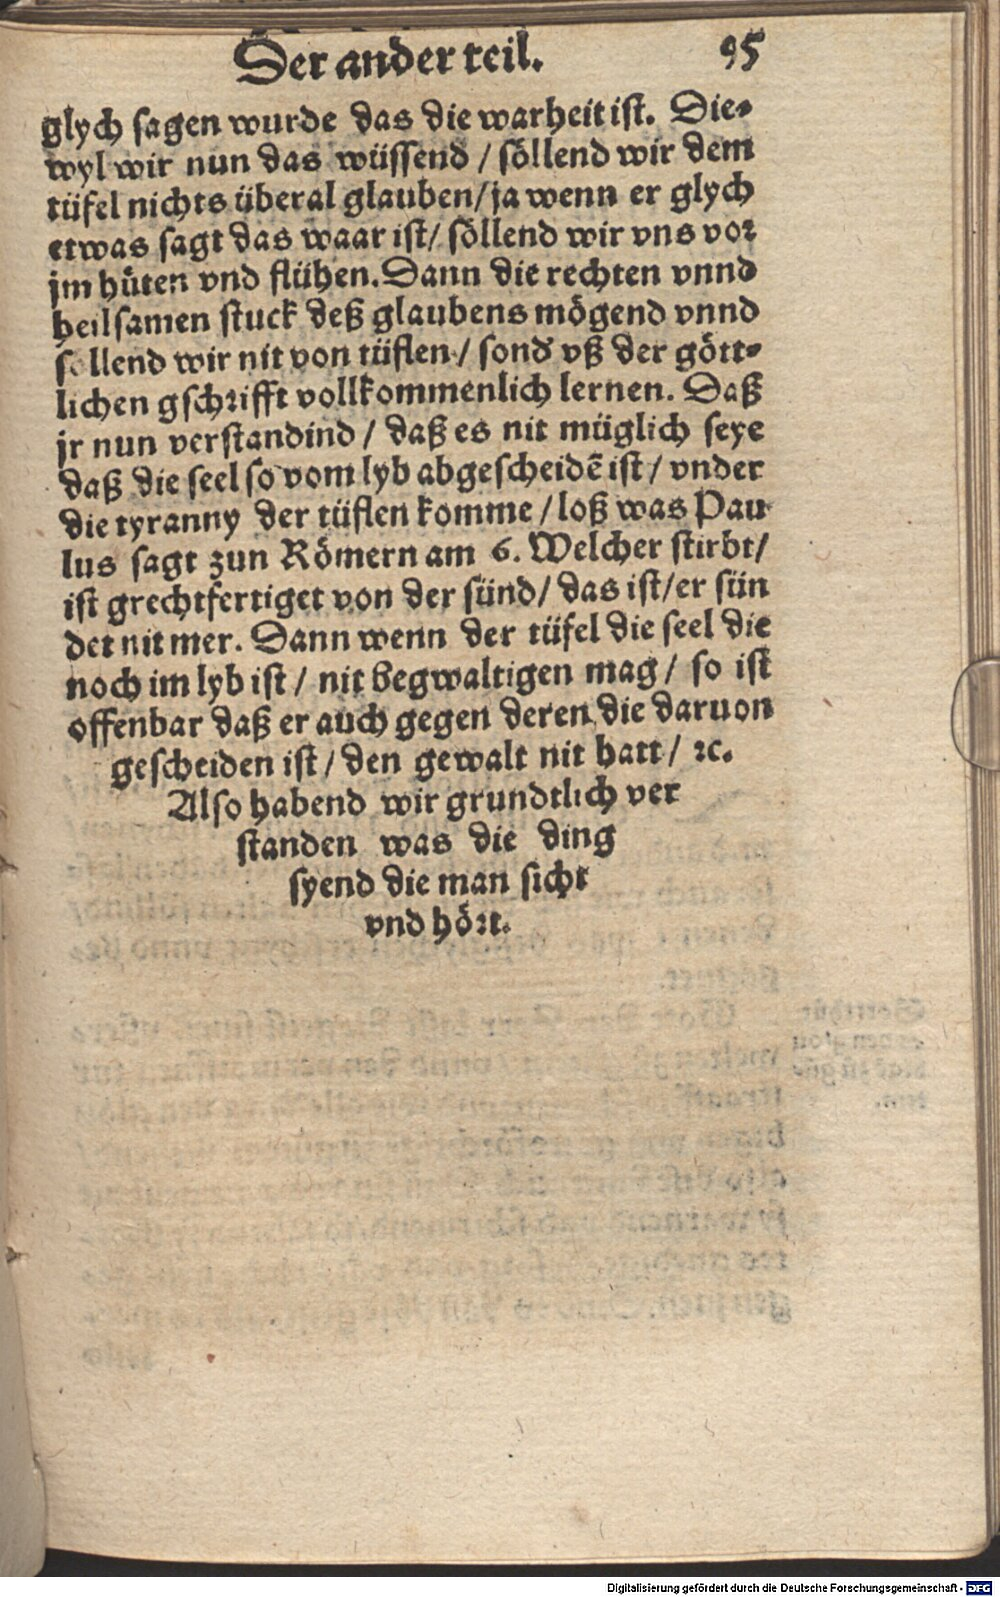 Der ander teil. 95
glych sagen wurde das die warheit ist. Die⸗
wyl wir nun das wüssend / söllend wir dem
tüfel nichts überal glauben / ja wenn er glych
etwas sagt das waar ist / söllend wir vns vor
jm hüten vnd flühen. Dann die rechten vnnd
heilsamen stuck deß glaubens mögend vnnd
sollend wir nit von tüflen / sond vß der gött⸗
lichen gschrifft vollkommenlich lernen. Daß
jr nun verstandind / daß es nit müglich seye
daß die seel so vom lyb abgescheidẽ ist / vnder
die tyranny der tüflen komme / loß was Pau
lus sagt zun Römern am 6. Welcher stirbt /
ist grechtfertiget von der sünd / das ist / er sün
det nit mer. Dann wenn der tüfel die seel die
noch im lyb ist / nit begwaltigen mag / so ist
offenbar daß er auch gegen deren die daruon
gescheiden ist / den gewalt nit hatt / ꝛc.
Also habend wir grundtlich ver
standen was die ding
syend die man sicht
vnd hört.
Digitalisierung gefördert durch die Deutsche Forschungsgemeinschaft - DFG